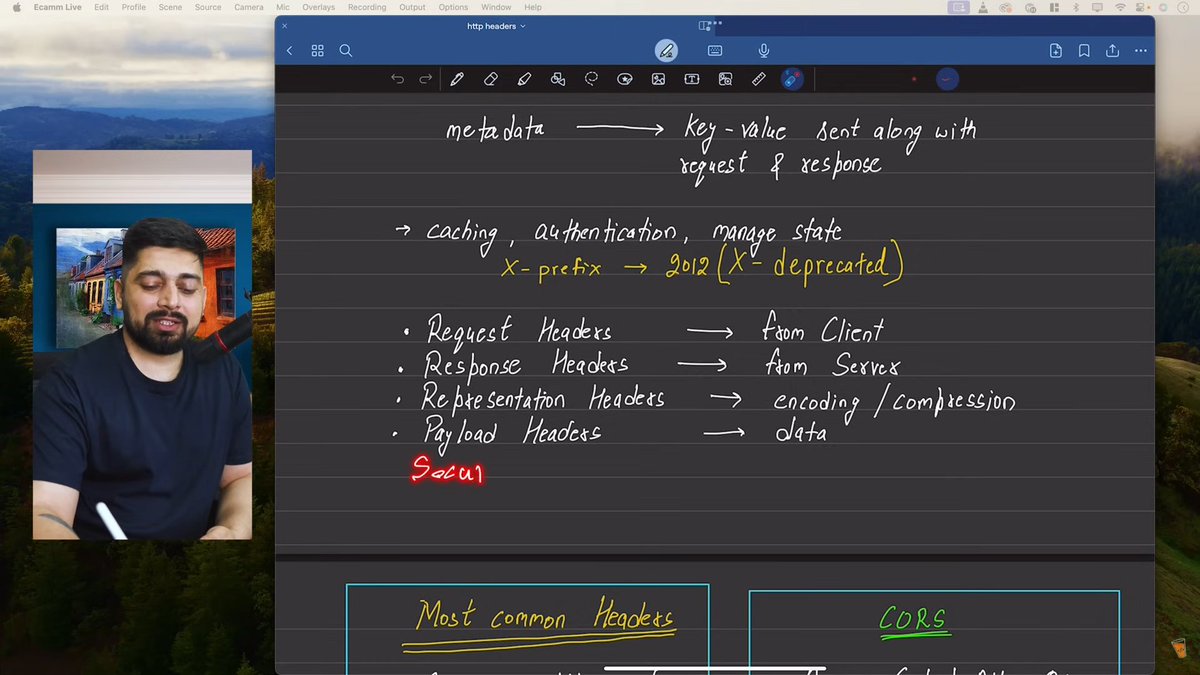 Ecamm Live Edit Profile Scene Source Camera Mic Overlays Recording Output Options Window Help
http headers
metadata → key-value sent along with
request & response
→ caching, authentication, manage state
X-prefix → 2012 (X- deprecated)
• Request Headers → from Client
• Response Headers → from Server
• Representation Headers → encoding / compression
• Payload Headers → data
Secur
Most common Headers
CORS